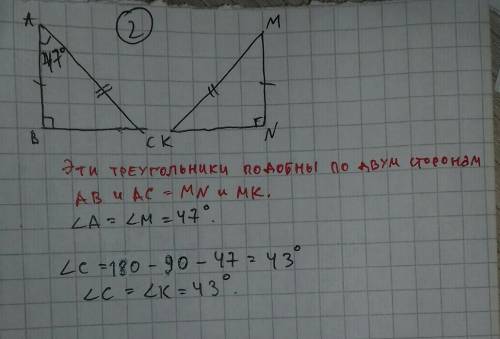 2
A
M
47°
B
C K
N
Эти треугольники подобны по двум сторонам
AB и AC = MN и MK.
∠A = ∠M = 47°.
∠C = 180 - 90 - 47 = 43°
∠C = ∠K = 43°.